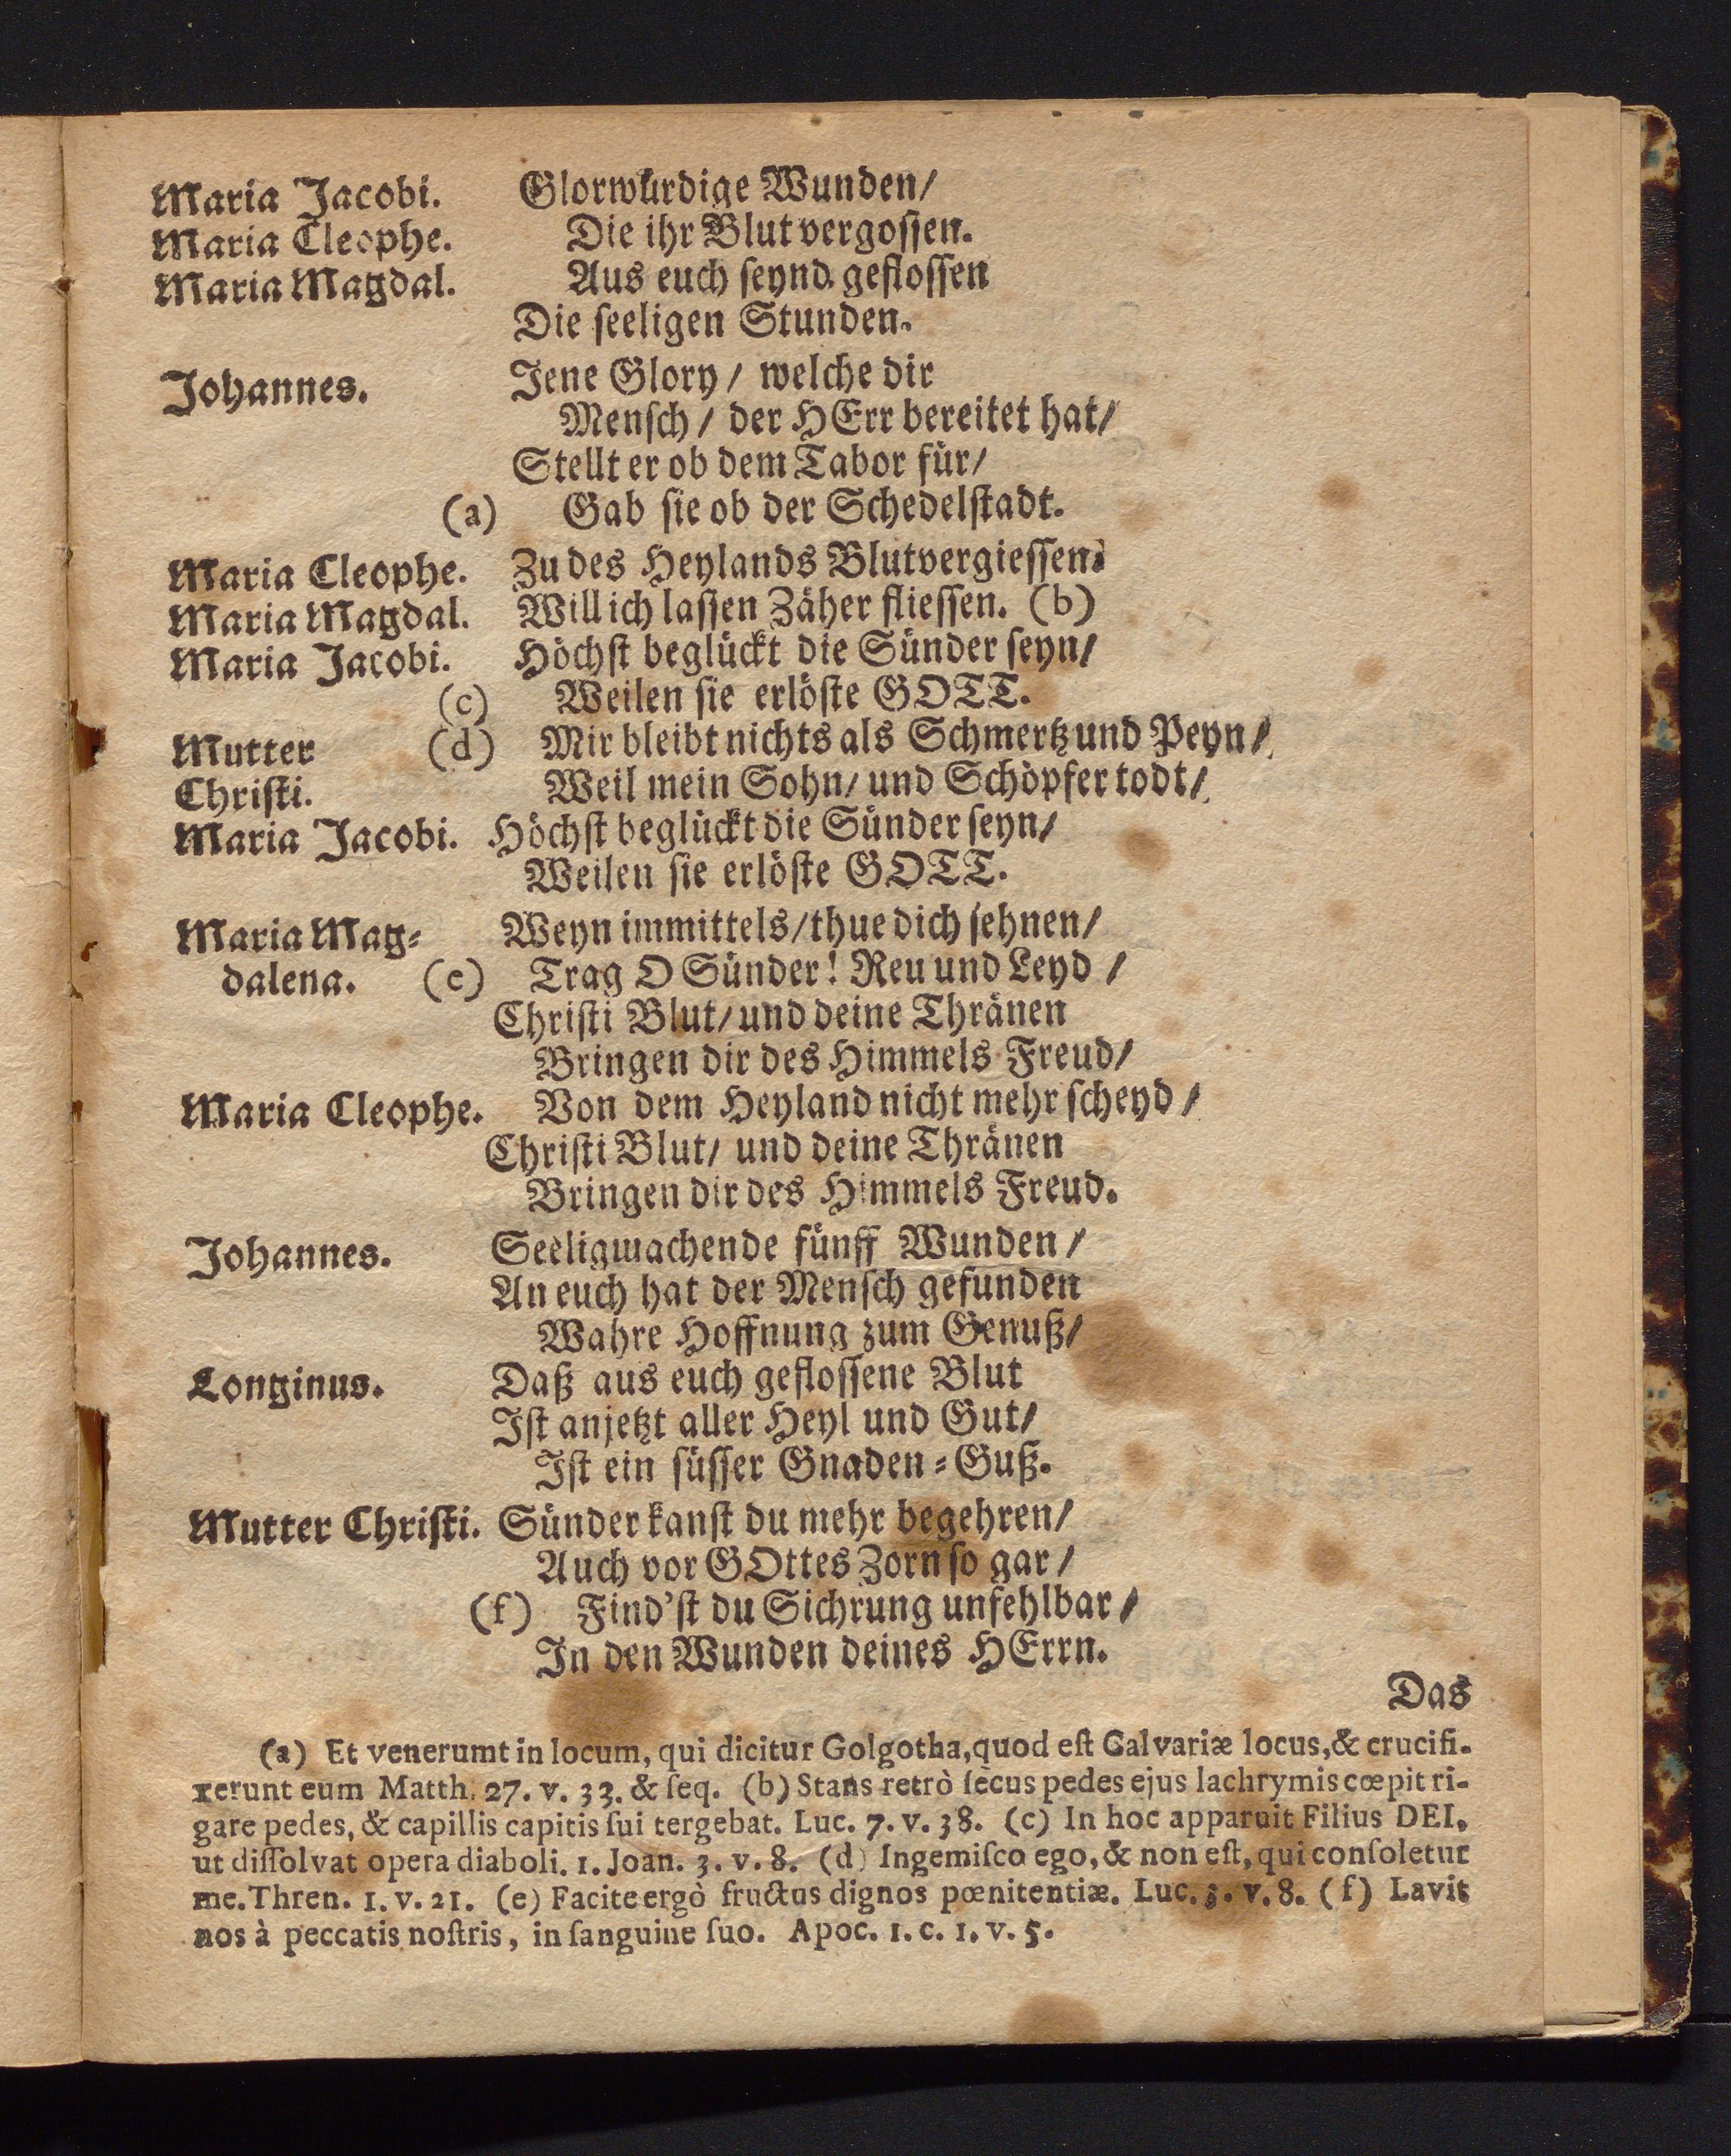 Maria Jacobi. Glorwürdige Wunden/
Maria Cleophe. Die ihr Blut vergossen.
Maria Magdal. Aus euch seynd geflossen
Die seeligen Stunden.
Johannes. Jene Glory / welche dir
Mensch / der HErr bereitet hat/
Stellt er ob dem Tabor für/
(a) Gab sie ob der Schedelstadt.
Maria Cleophe. Zu des Heylands Blutvergiessen
Maria Magdal. Will ich lassen Zäher fliessen. (b)
Maria Jacobi. Höchst beglückt die Sünder seyn/
(c) Weilen sie erlöste GOTT.
Mutter (d) Mir bleibt nichts als Schmertz und Peyn/
Christi. Weil mein Sohn/ und Schöpfer todt/
Maria Jacobi. Höchst beglückt die Sünder seyn/
Weilen sie erlöste GOTT.
Maria Mag= Weyn immittels/ thue dich sehnen/
dalena. (e) Trag O Sünder! Reu und Leyd /
Christi Blut/ und deine Thränen
Bringen dir des Himmels Freud/
Maria Cleophe. Von dem Heyland nicht mehr scheyd /
Christi Blut/ und deine Thränen
Bringen dir des Himmels Freud.
Johannes. Seeligmachende fünff Wunden /
An euch hat der Mensch gefunden
Wahre Hoffnung zum Genuß/
Longinus. Daß aus euch geflossene Blut
Ist anjetzt aller Heyl und Gut/
Ist ein süsser Gnaden=Guß.
Mutter Christi. Sünder kanst du mehr begehren/
Auch vor GOttes Zorn so gar /
(f) Find'st du Sichrung unfehlbar /
In den Wunden deines HErrn.
Das
(a) Et venerumt in locum, qui dicitur Golgotha, quod est Calvariæ locus, & crucifi-
xerunt eum Matth. 27. v. 33. & seq. (b) Stans retrò sècus pedes ejus lachrymis cœpit ri-
gare pedes, & capillis capitis sui tergebat. Luc. 7. v. 38. (c) In hoc apparuit Filius DEI,
ut dissolvat opera diaboli. 1. Joan. 3. v. 8. (d) Ingemisco ego, & non est, qui consoletur
me. Thren. 1. v. 21. (e) Facite ergò fructus dignos pœnitentiæ. Luc. 3. v. 8. (f) Lavit
nos à peccatis nostris, in sanguine suo. Apoc. 1. c. 1. v. 5.